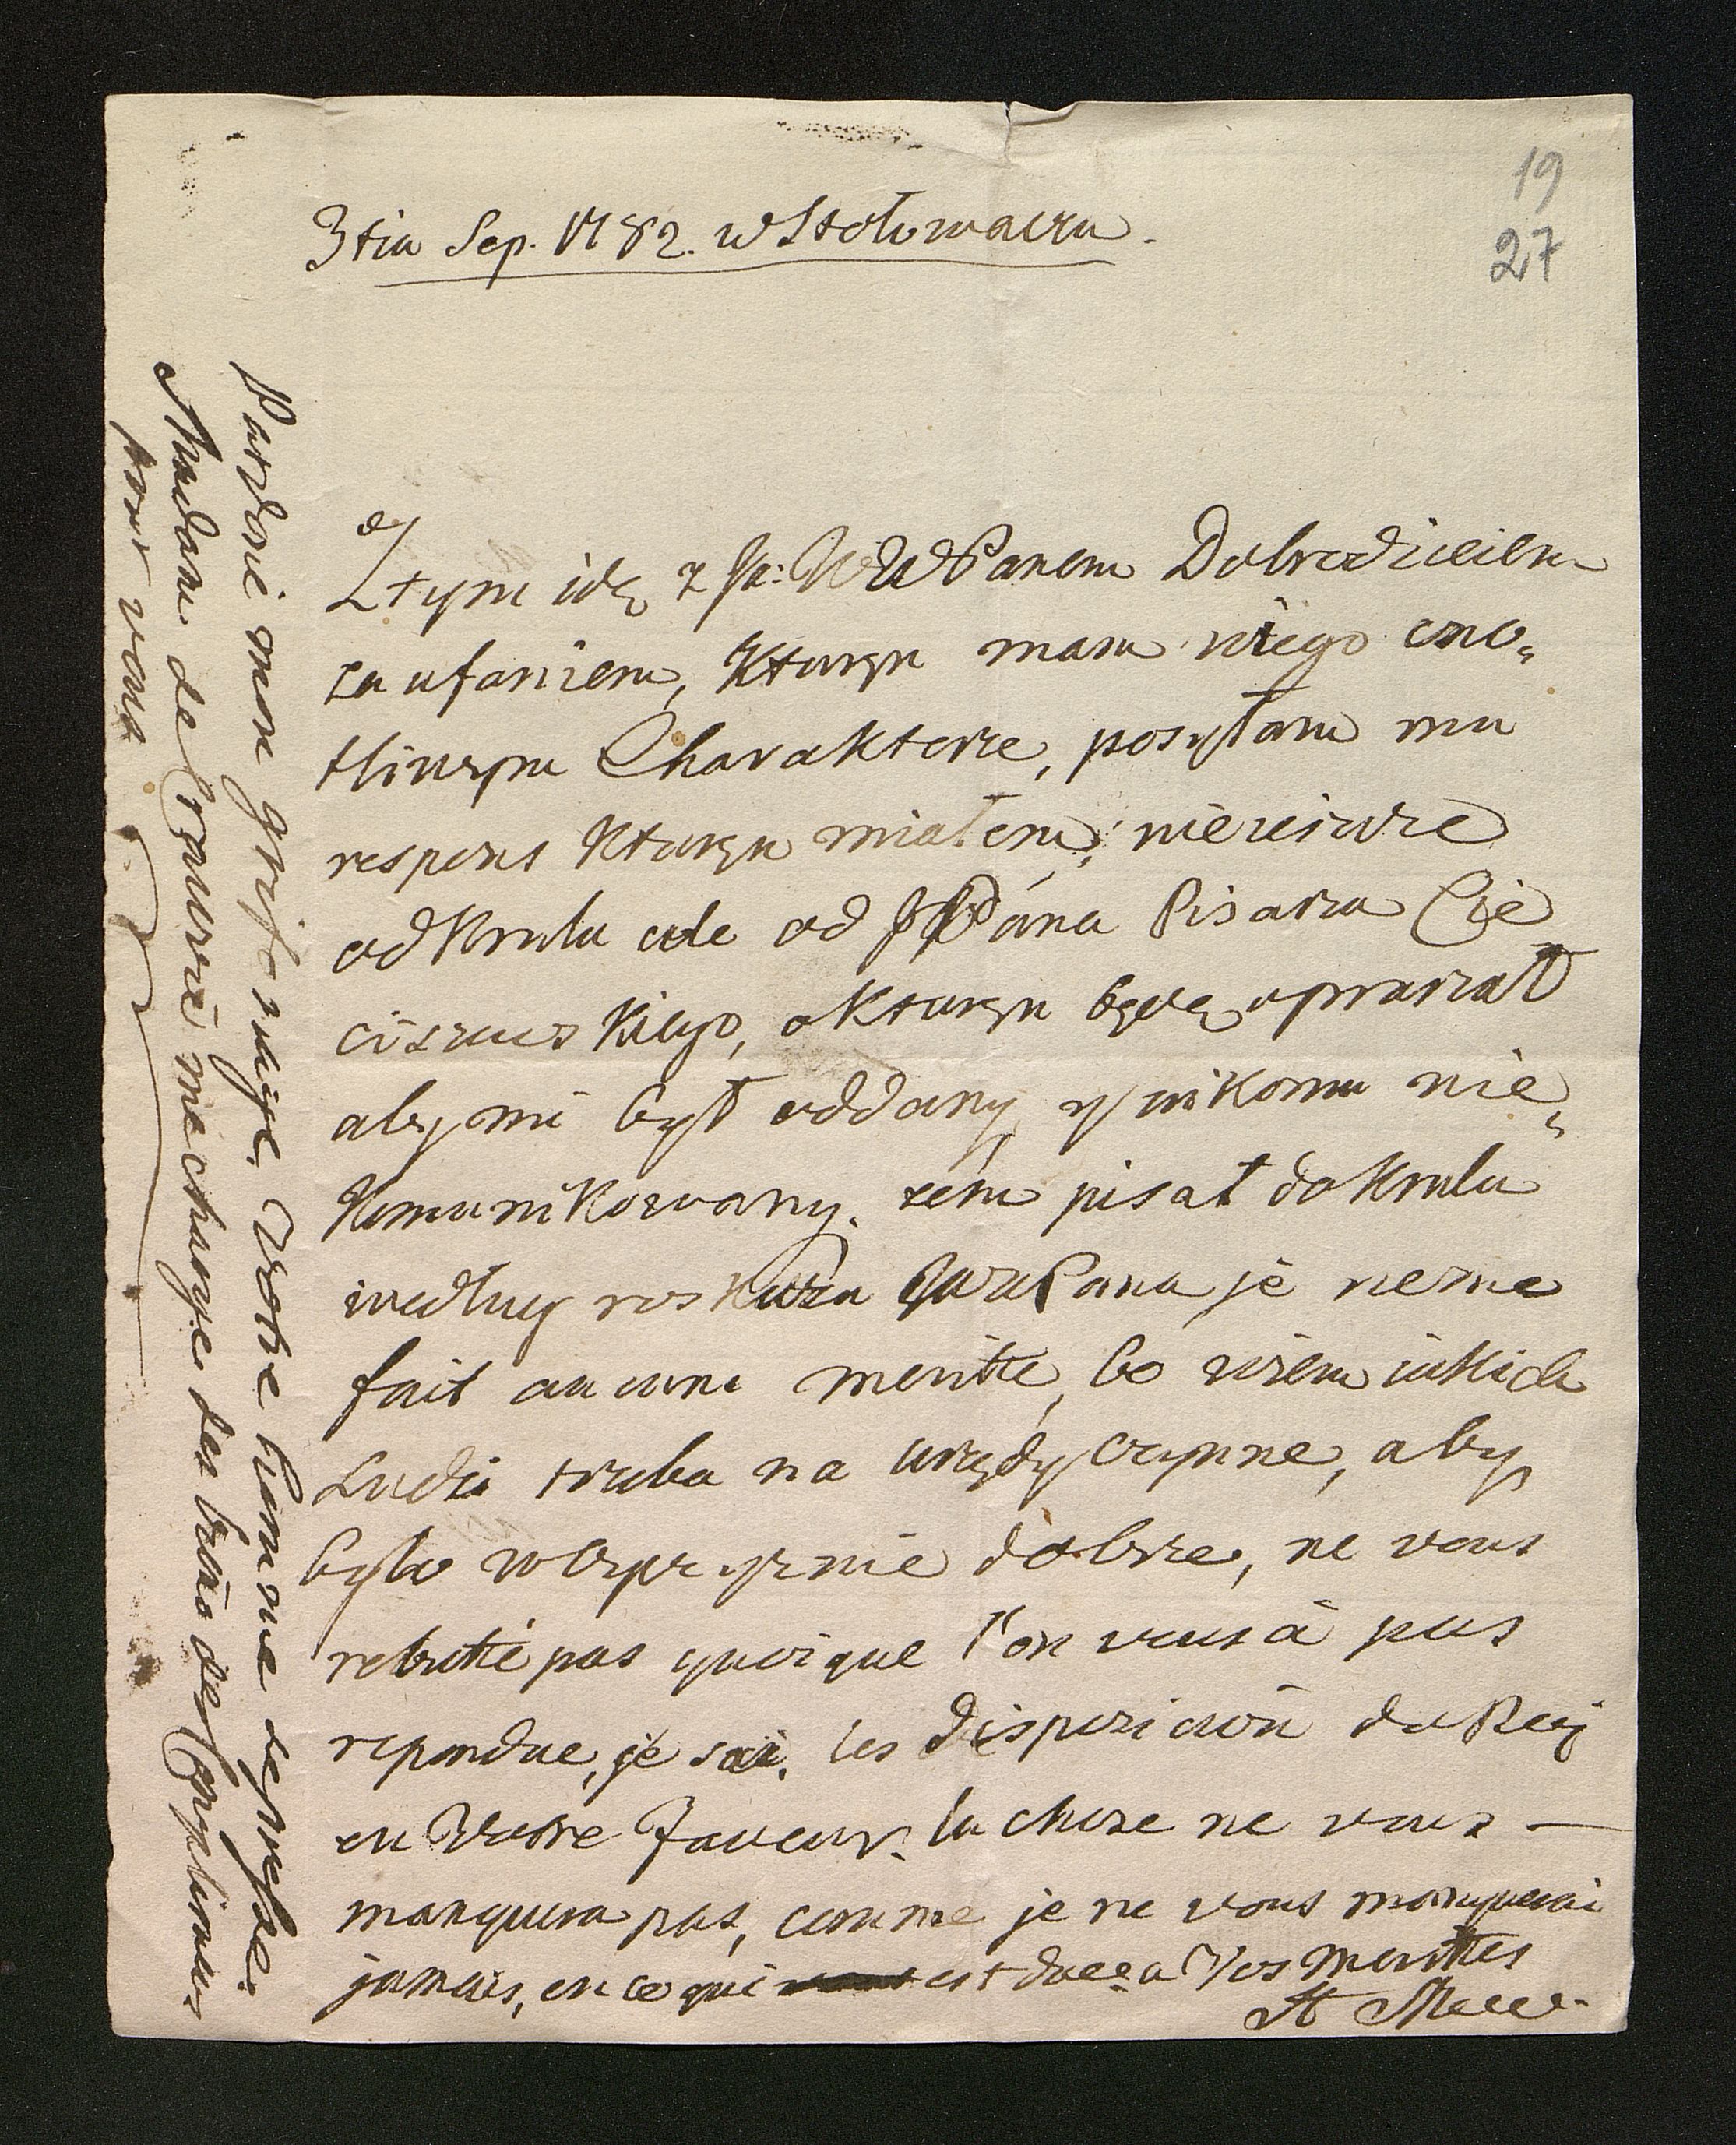 19
27
3tia Sep. 1782. w Stołowaczu.
Z tym idę z JW: WWPanem Dobrodzieiem
zaufaniem, Kturym mam w iego cno„
tliwym Charakterze, posyłam mu
respons Kturym miałem, nieieszcze
od Krula ale od JPana Pisarza Cie
ciszewskiego, o Kturym będę upraszał
aby mi był oddany y nikomu nie„
komunikowany. żem pisał do Krula
według roskazu JWWPana je neme
fait aucune meritte, bo wiem iakich
Ludzi trzeba na urzędy czynne, aby
było w Oyczyznie dobrze, ne vous
rebutté pas quoique l'on vous à pas
repondue, je sai, les disposicion du Roij
en Vostre Faveur. la chose ne vous —
manquera pas, comme je ne vous manquerai
jamais, en ce qui est duee a Vos Merittes
Pardoné mon grifonaije, Vostre homme depeche.
Madame de Cracovie me charge des bien des Compliments
pour vous